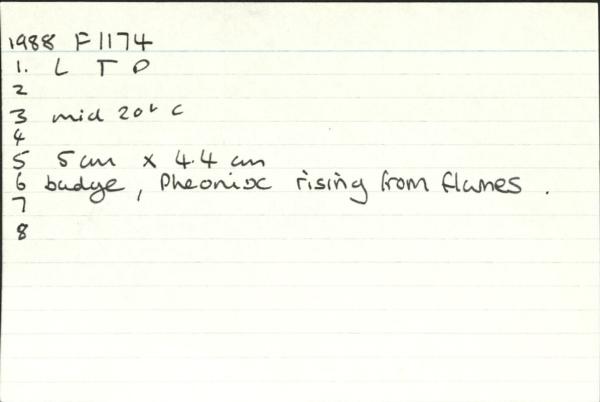 1988 F1174
1. L T D
2
3 mid 20th C
4
5 5cm x 4.4 cm
6 badge, Pheonix rising from flames.
7
8